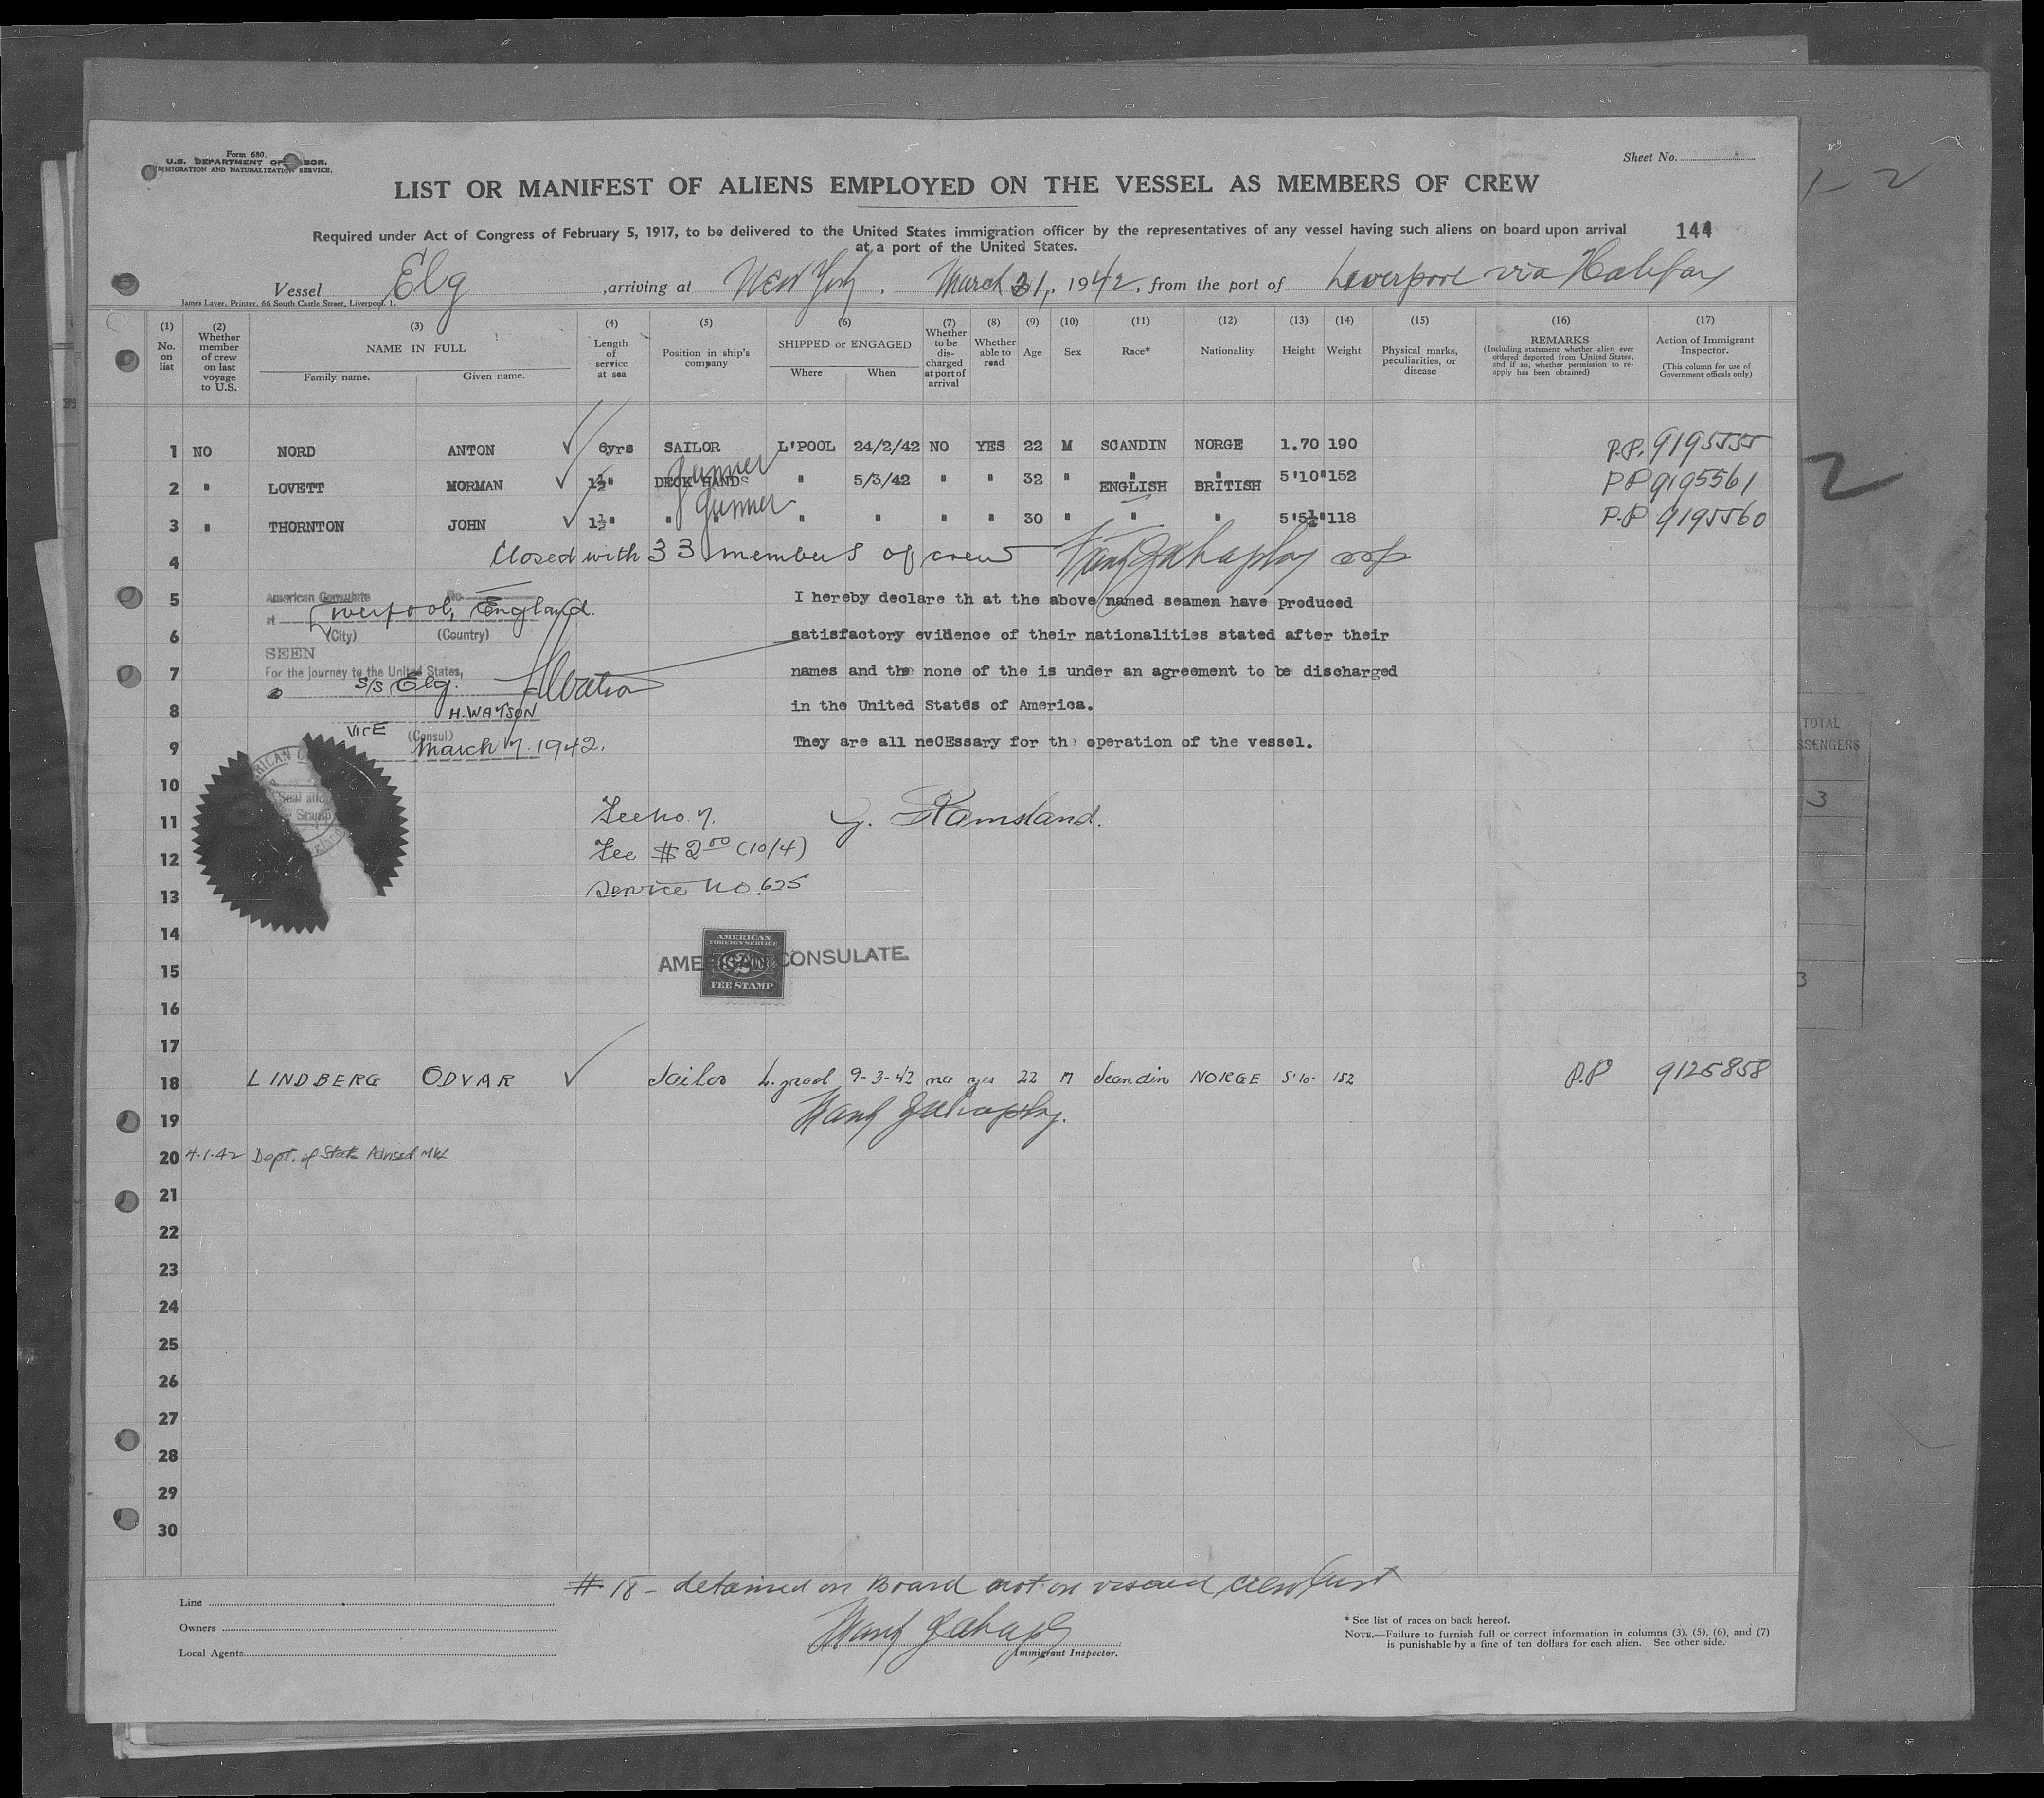 Form 680.
U.S. DEPARTMENT OF LABOR.
IMMIGRATION AND NATURALIZATION SERVICE.
Sheet No.
LIST OR MANIFEST OF ALIENS EMPLOYED ON THE VESSEL AS MEMBERS OF CREW
Required under Act of Congress of February 5, 1917, to be delivered to the United States immigration officer by the representatives of any vessel having such aliens on board upon arrival
at a port of the United States.
144
1-2
Vessel Elg ,arriving at New York , March 31, 1942, from the port of Liverpool via Halifax
James Laver, Printer, 66 South Castle Street, Liverpool, 1.
(1) No. on list
(2) Whether member of crew on last voyage to U.S.
(3) NAME IN FULL Family name. Given name.
(4) Length of service at sea
(5) Position in ship's company
(6) SHIPPED or ENGAGED Where When
(7) Whether to be discharged at port of arrival
(8) Whether able to read
(9) Age
(10) Sex
(11) Race*
(12) Nationality
(13) Height
(14) Weight
(15) Physical marks, peculiarities, or disease
(16) REMARKS (Including statement whether alien ever ordered deported from United States, and if so, whether permission to re-apply has been obtained)
(17) Action of Immigrant Inspector. (This column for use of Government officals only)
1 NO NORD ANTON ✓ 6yrs SAILOR L'POOL 24/2/42 NO YES 22 M SCANDIN NORGE 1.70 190 P.P. 9195555
2 " LOVETT MORMAN ✓ 1½" DECK HANDS Gunner " 5/3/42 " " 32 " ENGLISH BRITISH 5'10" 152 PP 9195561
2
3 " THORNTON JOHN ✓ 1½" " " Gunner " " " " 30 " " " 5'5½" 118 P.P 9195560
4 Closed with 33 members of crew
5 American Consulate No.
at Liverpool, England.
I hereby declare th at the above named seamen have produced
6 (City) (Country)
satisfactory evidence of their nationalities stated after their
SEEN
7 For the journey to the United States,
names and the none of the is under an agreement to be discharged
S/S Elg. HWatson
8 H. WATSON
in the United States of America.
VICE (Consul)
9 March 7. 1942.
They are all neCEssary for the operation of the vessel.
10
11 Fee no. 7.
J. Ramsland.
12 Fee $2.00 (10/4)
13 Service no. 625
14 AMERICAN FOREIGN SERVICE
15 AMERICAN CONSULATE.
FEE STAMP
16
17
18 LINDBERG ODVAR ✓ Sailor L. pool 9-3-42 no yes 22 M Scandin NORGE 5'10" 152 P.P 9125858
19
20 4-1-42 Dept. of State Advised
21
22
23
24
25
26
27
28
29
30
TOTAL
3
3
# 18 - detained on Board not on visaed crew list
Line
Owners
Local Agents
Immigrant Inspector.
* See list of races on back hereof.
NOTE.—Failure to furnish full or correct information in columns (3), (5), (6), and (7)
is punishable by a fine of ten dollars for each alien. See other side.